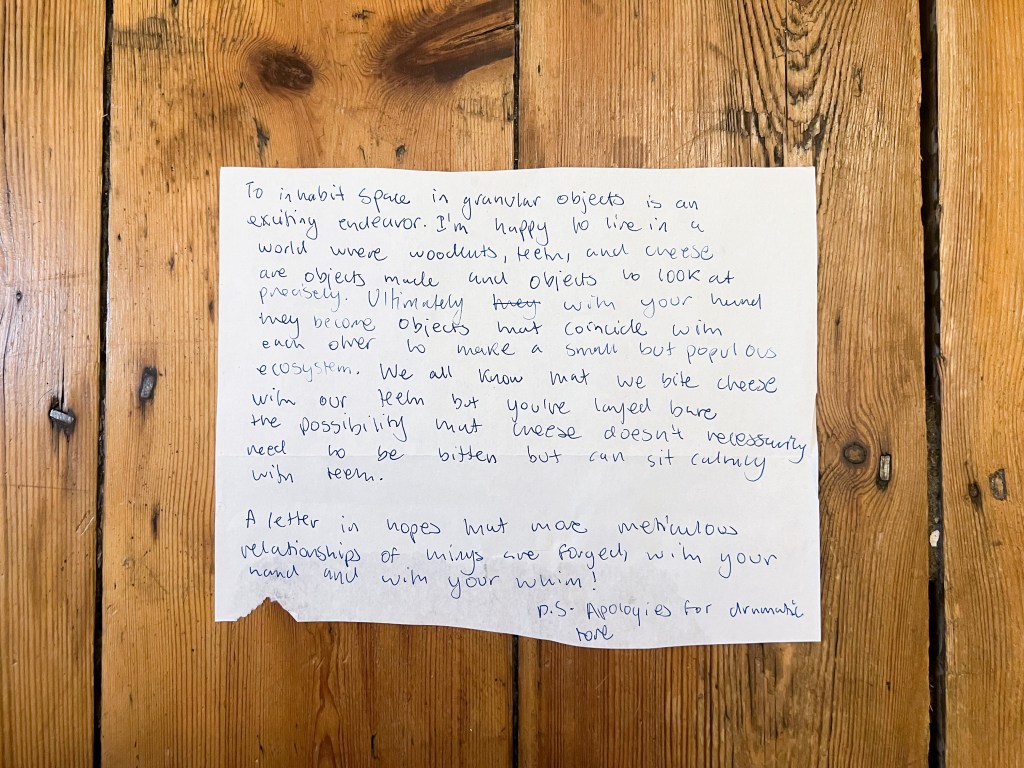 To inhabit space in granular objects is an
exciting endeavor. I'm happy to live in a
world where woodcuts, teeth, and cheese
are objects made and objects to look at
precisely. Ultimately they with your hand
they become objects that coincide with
each other to make a small but populous
ecosystem. We all know that we bite cheese
with our teeth but you've layed bare
the possibility that cheese doesn't necessarily
need to be bitten but can sit calmly
with teeth.
A letter in hopes that more meticulous
relationships of things are forged, with your
hand and with your whim!
P.S. Apologies for dramatic
tone